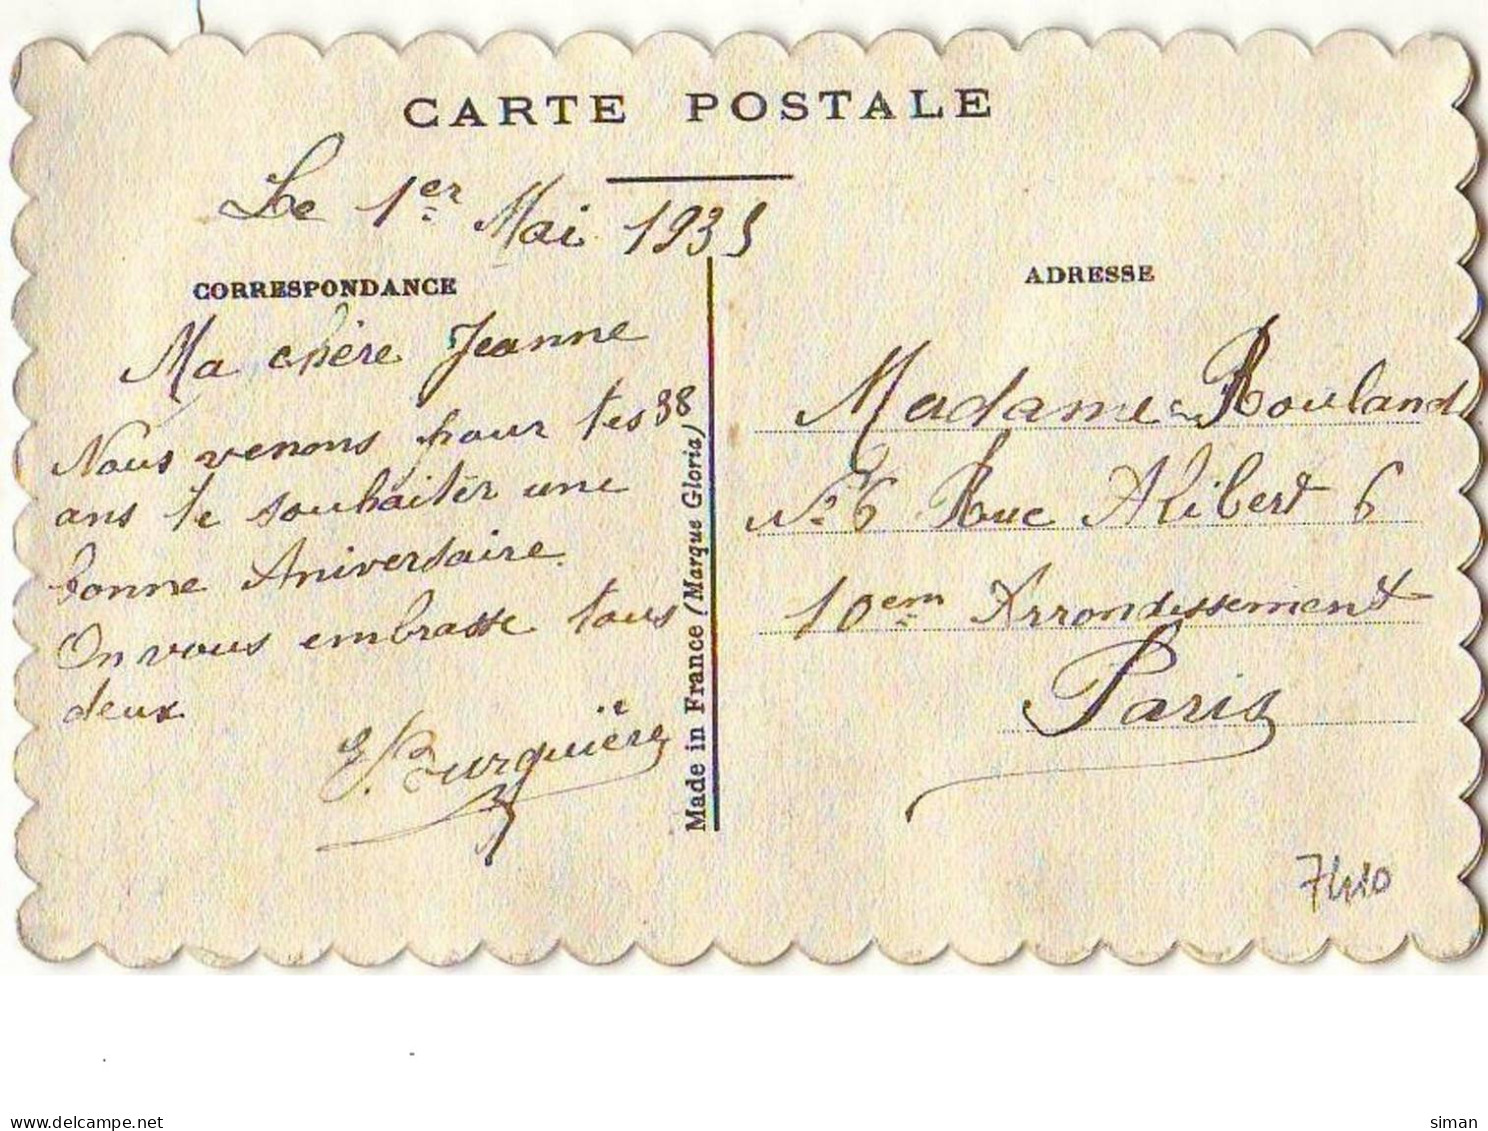 CARTE POSTALE
Le 1er Mai 1935
CORRESPONDANCE
Ma chère Jeanne
Nous venons pour tes 38
ans te souhaiter une
bonne Aniversaire.
On vous embrasse tous
deux
Made in France (Marque Gloria)
ADRESSE
Madame Rouland
No 6 Rue Alibert 6
10em Arrondissement
Paris
7410
delcampe.net
siman